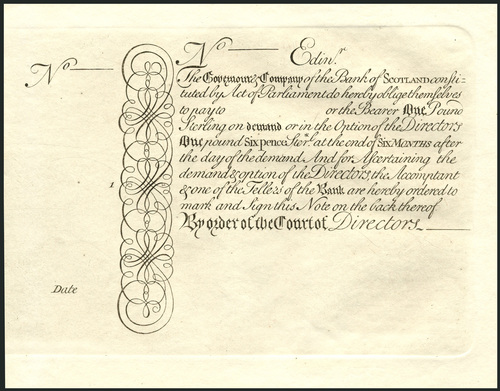 No
No Edinr.
The Governour & Company of the Bank of SCOTLAND consti-
tuted by Act of Parliament do hereby oblige themselves
to pay to or the Bearer One Pound
Sterling on demand or in the Option of the Directors
One pound Six pence Ster. at the end of SIX MONTHS after
the day of the demand And for Ascertaining the
demand & option of the Directors, the Accomptant
1
& one of the Tellers of the Bank are hereby ordered to
mark and Sign this Note on the back thereof
By order of the Court of Directors
Date